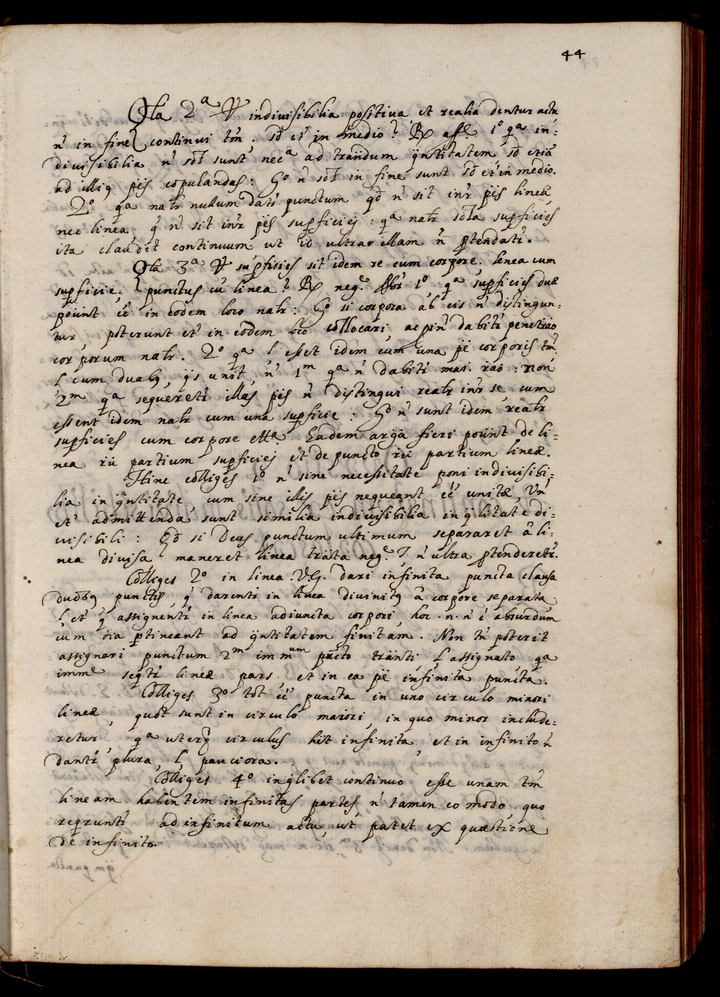 44
Qla 2ª Vt indivisibilia positiva et realia dentur actu
n in fine continui tm. sd et in medio? Rx aff. 1º qª in-
divisibilia n sol sunt necª ad trandum qntitatem sd etiã
ad illig ptis copulandas: Gº n sol in fine sunt sd et in medio.
2º qª natr nullum dati punctum qd n sit intr ptis lineæ
nec linea, q n sit intr ptis supficiej: qª natr sola supficies
ita claudit continuum ut id ultra illam n ptendati.
Qla 3ª Vt supficies sit idem re cum corpore. linea cum
supficie. punctus cũ linea? Rx neg. 1º qª supficies duæ
pount eẽ in eodem loco natr: Gº si corpora ab eis n distingun-
tur, poterunt et in eodem loco collocari, ac dabiti penetrão
corporum natr. 2º qª l esset idem cum una pẽ corporis tm
l cum duabg, ijs unit, n 1m qª n dabiti mai. raõ: non
2m qª sequereti illas ptis n distingui realr intr se cum
essent idem natr cum una supficie: Gº n sunt idem realr
supficies cum corpore Eadem arga fieri pount de li-
nea rũ partium supficiej et de puncto rũ partium lineæ.
Hinc colliges 1º n sine necessitate poni indivisibi-
lia in qntitate cum sine illis ptis nequeant eẽ unitæ Vn
et admittenda sunt similia indivisibilia in qlitate di-
visibili: Qd si Deus punctum ultimum separaret á li-
nea divisa maneret linea trãta neg. n ultra ptendereti.
Colliges 2º in linea .V.G. dari infinita puncta clausa
duobg punctis, q darenti in linea divinitg á corpore separata
l et q assignenti in linea adiuncta corpori, hoc .n. n ẽ absurdum
cum oia ptineant ad qntitatem finitam. Non tñ poterit
assignari punctum 2m imm puncto trãnti l assignato qª
imme seqti lineæ pars et in ea pẽ infinita puncta.
Colliges 3º tot eẽ puncta in uno circulo minori
lineæ, quot sunt in circulo maiori, in quo minor include-
retur, qª uterq circulus hẽt infinita, et in infinito n
danti plura, l pauciora.
Colliges 4º in qlibet continuo esse unam tm
lineam habentem infinitas partes n tamen eo modo quo
reqrunti ad infinitum actu, ut patet ex quæstione
de infinito.